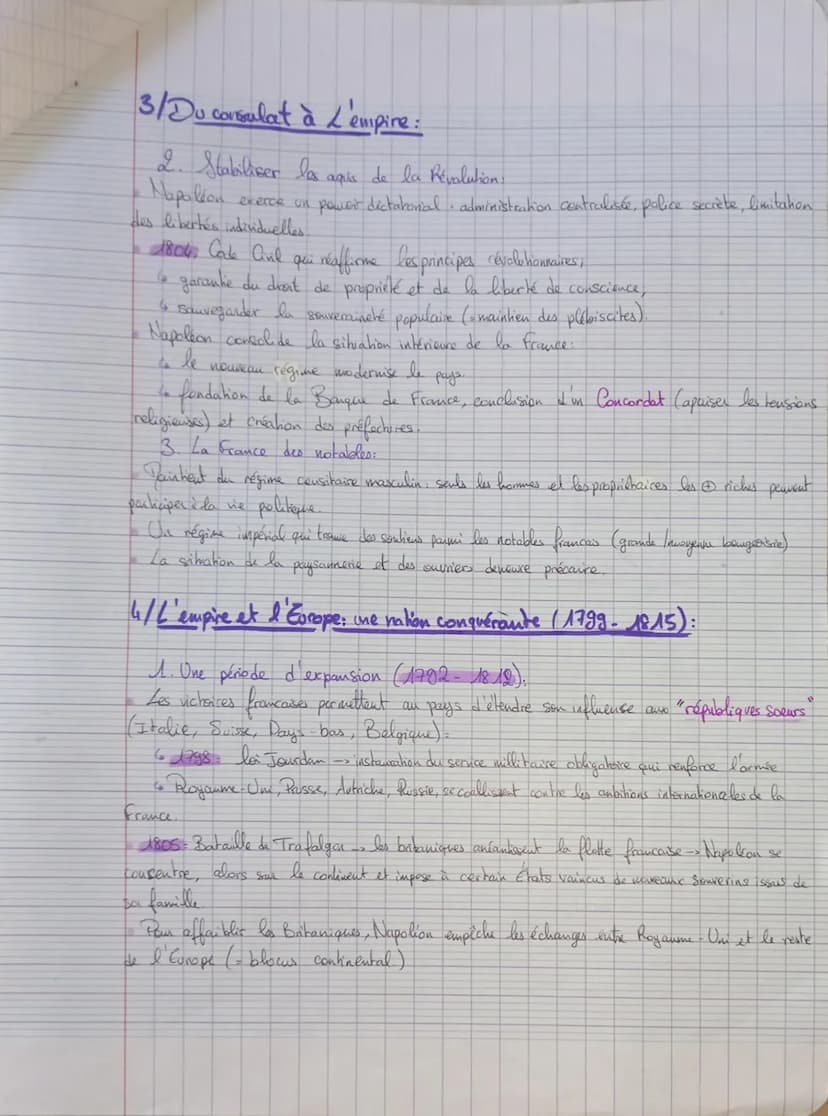 3/Du consulat à L'empire:
2. Stabiliser les aquis de la Révolution:
Napoléon exerce un pouvoir dictatorial: administration centralisée, police secrète, limitation
des libertés individuelles.
1804: Code Civil qui réaffirme les principes révolutionnaires,
↳ garantie du droit de propriété et de la liberté de conscience,
↳ sauvegarder la souveraineté populaire (=maintien des plébiscites).
Napoléon consolide la situation intérieure de la France:
↳ le nouveau régime modernise le pays.
↳ fondation de la Banque de France, conclusion d'un Concordat (apaiser les tensions
religieuses) et création des préfectures.
3. La France des notables:
du régime censitaire masculin: seuls les hommes et les propriétaires les ⊕ riches peuvent
participer à la vie politique.
Un régime impérial qui trouve des soutiens parmi les notables francais (grande/moyenne bourgeoisie)
La situation de la paysannerie et des ouvriers demeure précaire.
4/L'empire et l'Europe: une nation conquérante (1799-1815):
1. Une période d'expansion (1792-1812):
Les victoires françaises permettent au pays d'étendre son influence aux "républiques soeurs"
(Italie, Suisse, Pays-bas, Belgique):
↳ 1798: loi Jourdan → instauration du service millitaire obligatoire qui renforce l'armée
↳ Royaume-Uni, Prusse, Autriche, Russie, se coallisent contre les ambitions internationales de la
France.
1805: Bataille de Trafalgar → les britaniques anéantissent la flotte francaise → Napoléon se
concentre, alors sur le continent et impose à certain États vaincus de nouveaux souverins issus de
sa famille.
Pour affaiblir les Britaniques, Napoléon empêche les échanges entre Royaume-Uni et le reste
de l'Europe (=blocus continental)